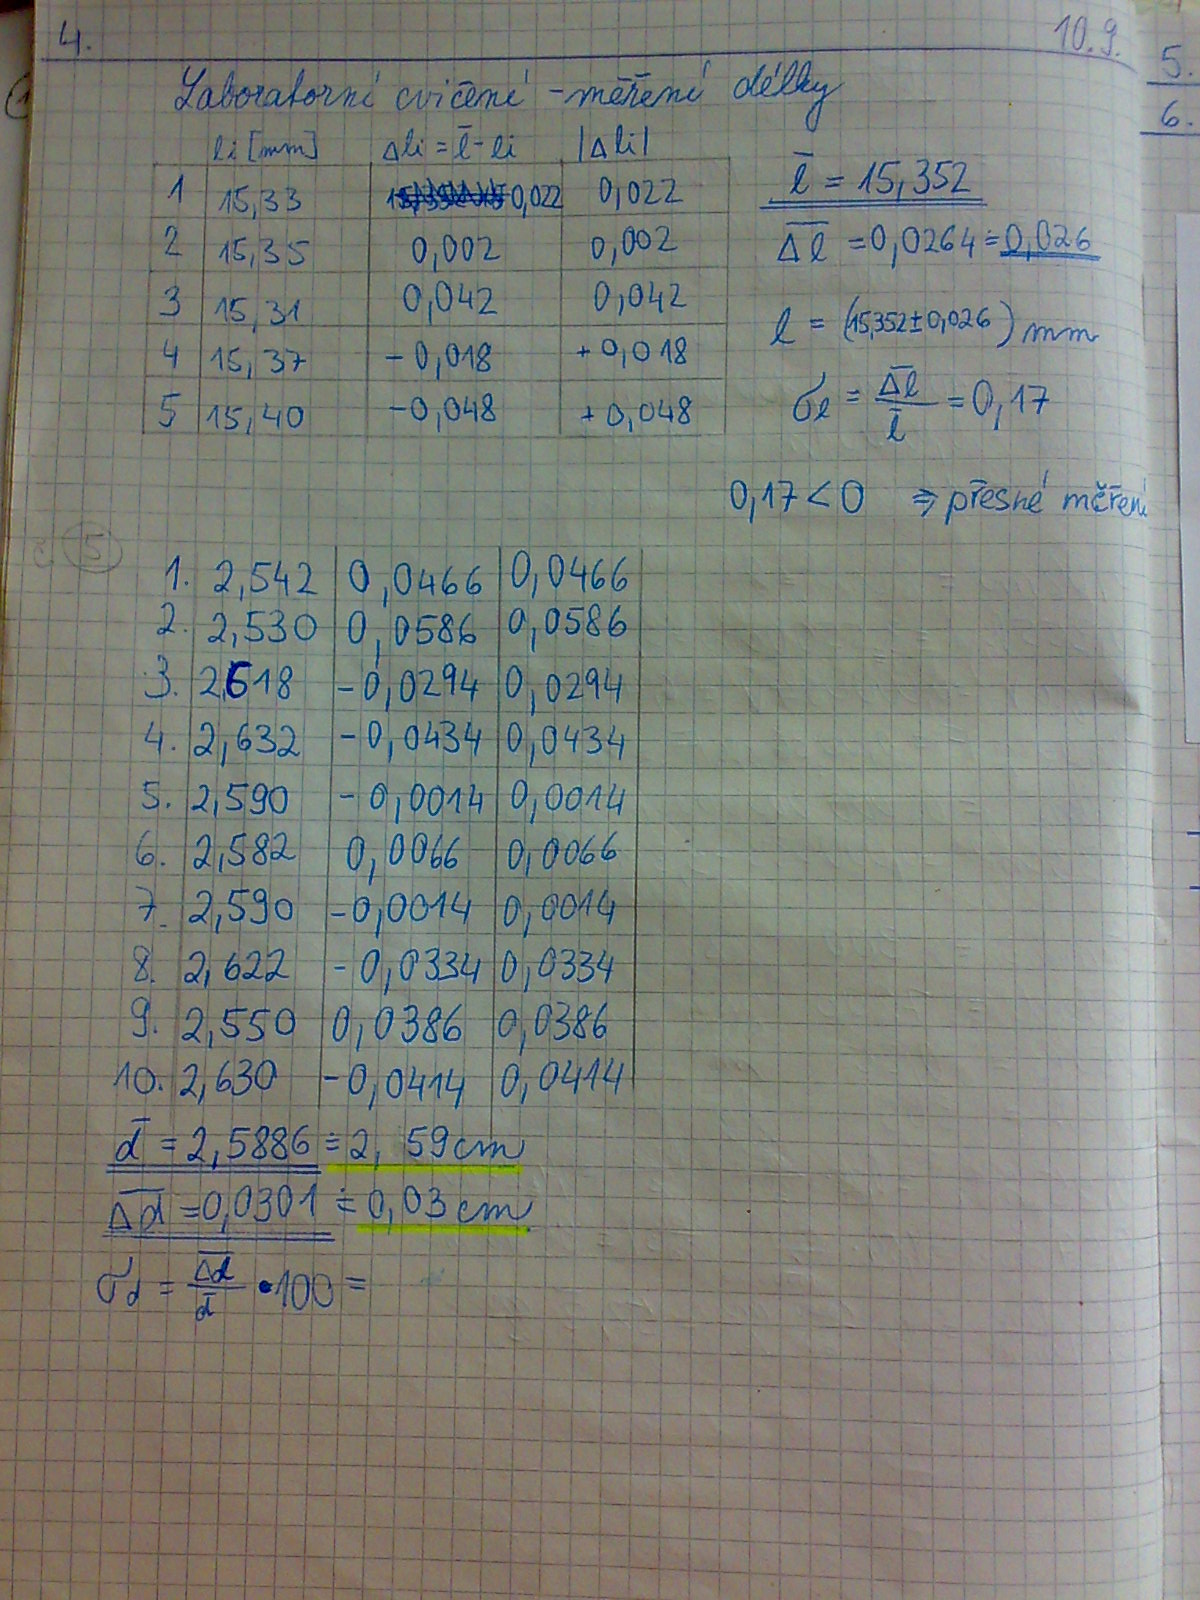 4. 10.9.
Laboratorní cvičení - měření délky
li [mm] Δli = l̄ - li |Δli|
1 15,33 0,022 0,022
2 15,35 0,002 0,002
3 15,31 0,042 0,042
4 15,37 - 0,018 + 0,018
5 15,40 - 0,048 + 0,048
l̄ = 15,352
Δ̄l̄ = 0,0264 ≐ 0,026
l = (15,352 ± 0,026) mm
σl = Δ̄l̄ / l̄ = 0,17
0,17 < 0 ⇒ přesné měření
5
1. 2,542 0,0466 0,0466
2. 2,530 0,0586 0,0586
3. 2,618 - 0,0294 0,0294
4. 2,632 - 0,0434 0,0434
5. 2,590 - 0,0014 0,0014
6. 2,582 0,0066 0,0066
7. 2,590 - 0,0014 0,0014
8. 2,622 - 0,0334 0,0334
9. 2,550 0,0386 0,0386
10. 2,630 - 0,0414 0,0414
d̄ = 2,5886 ≐ 2,59 cm
Δ̄d̄ = 0,0301 ≐ 0,03 cm
σd = Δ̄d̄ / d̄ • 100 =
5.
6.